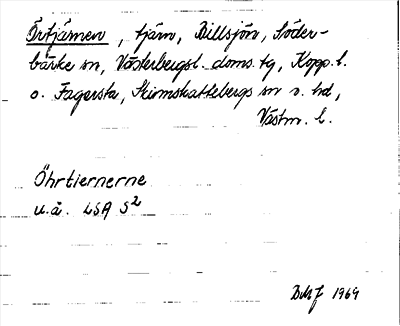 Örtjärnen, tjärn, Billsjön, Söder-
bärke sn, Västerbergsl. doms. tg, Kopp. l.
o. Fagersta, Skinnskattebergs sn o. hd,
Västm. l.
Öhrtiernerne
u.å. LSA S²
BMJ 1969